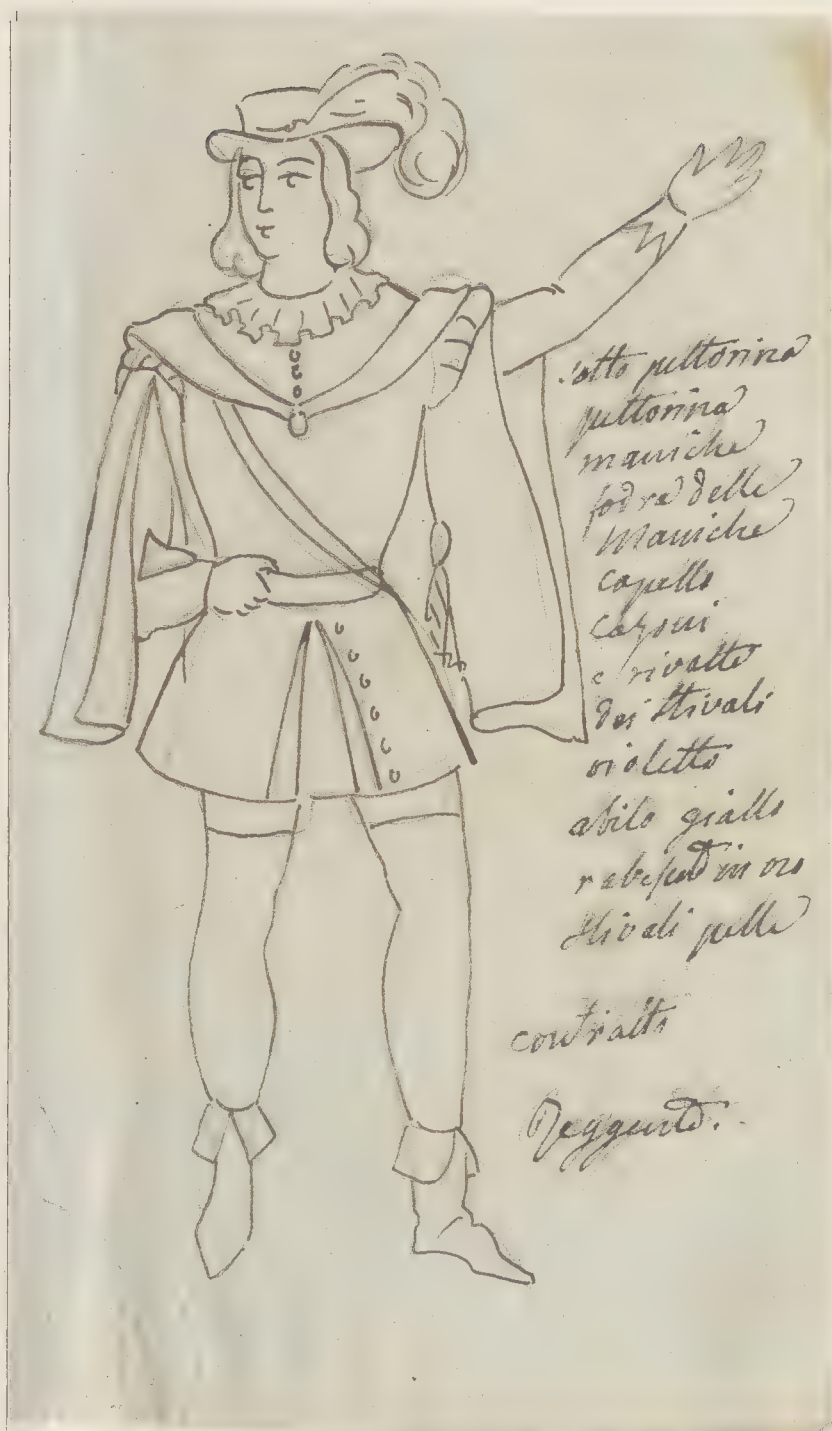 sotto pettorina
pettorina
maniche
fodra delle
Maniche
capello
calzoni
e rivolte
dei stivali
violetto
abito giallo
rabescato in oro
stivali pelle
contralto